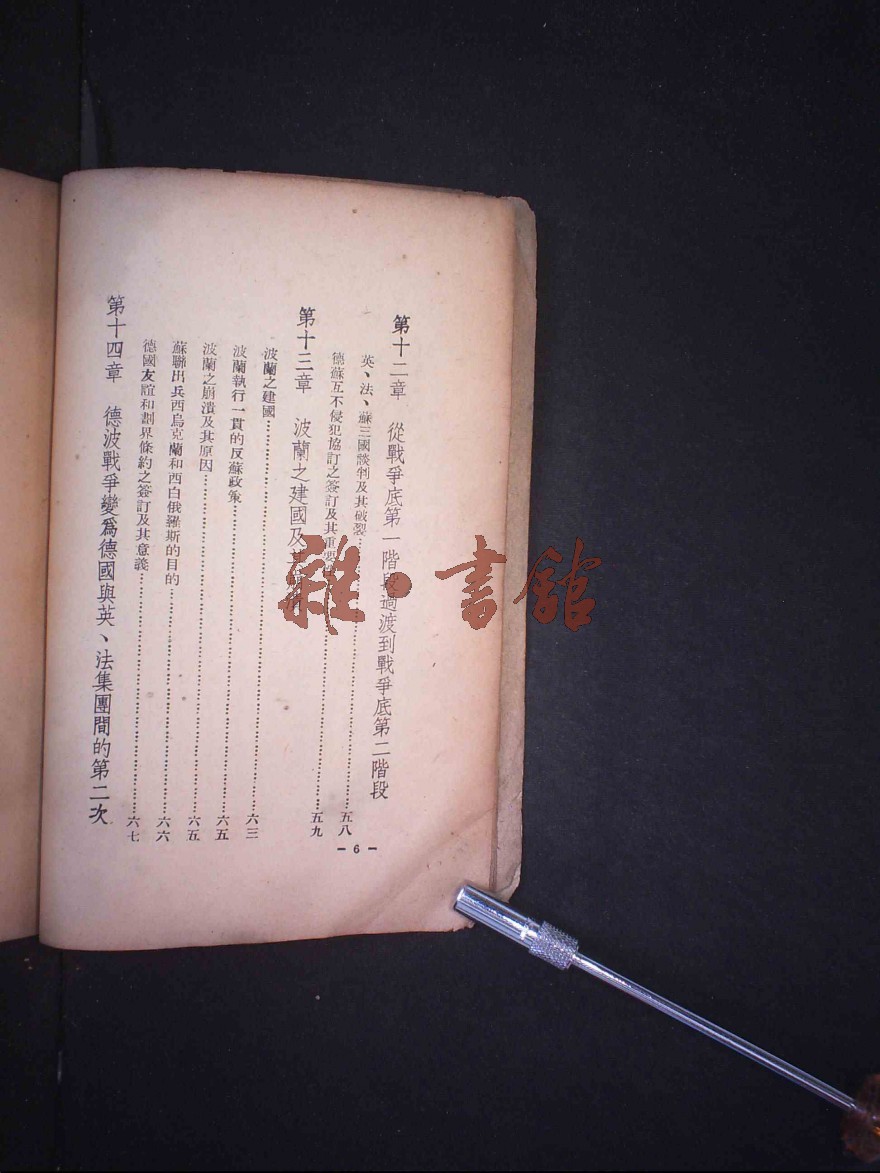 第十二章　從戰爭底第一階段過渡到戰爭底第二階段
英、法、蘇三國談判及其破裂……五八
德蘇互不侵犯協訂之簽訂及其重要……五九
第十三章　波蘭之建國及其
波蘭之建國……六三
波蘭執行一貫的反蘇政策……六五
波蘭之崩潰及其原因……六五
蘇聯出兵西烏克蘭和西白俄羅斯的目的……六六
德國友誼和劃界條約之簽訂及其意義……六七
第十四章　德波戰爭變爲德國與英、法集團間的第二次
— 6 —
雜·書館